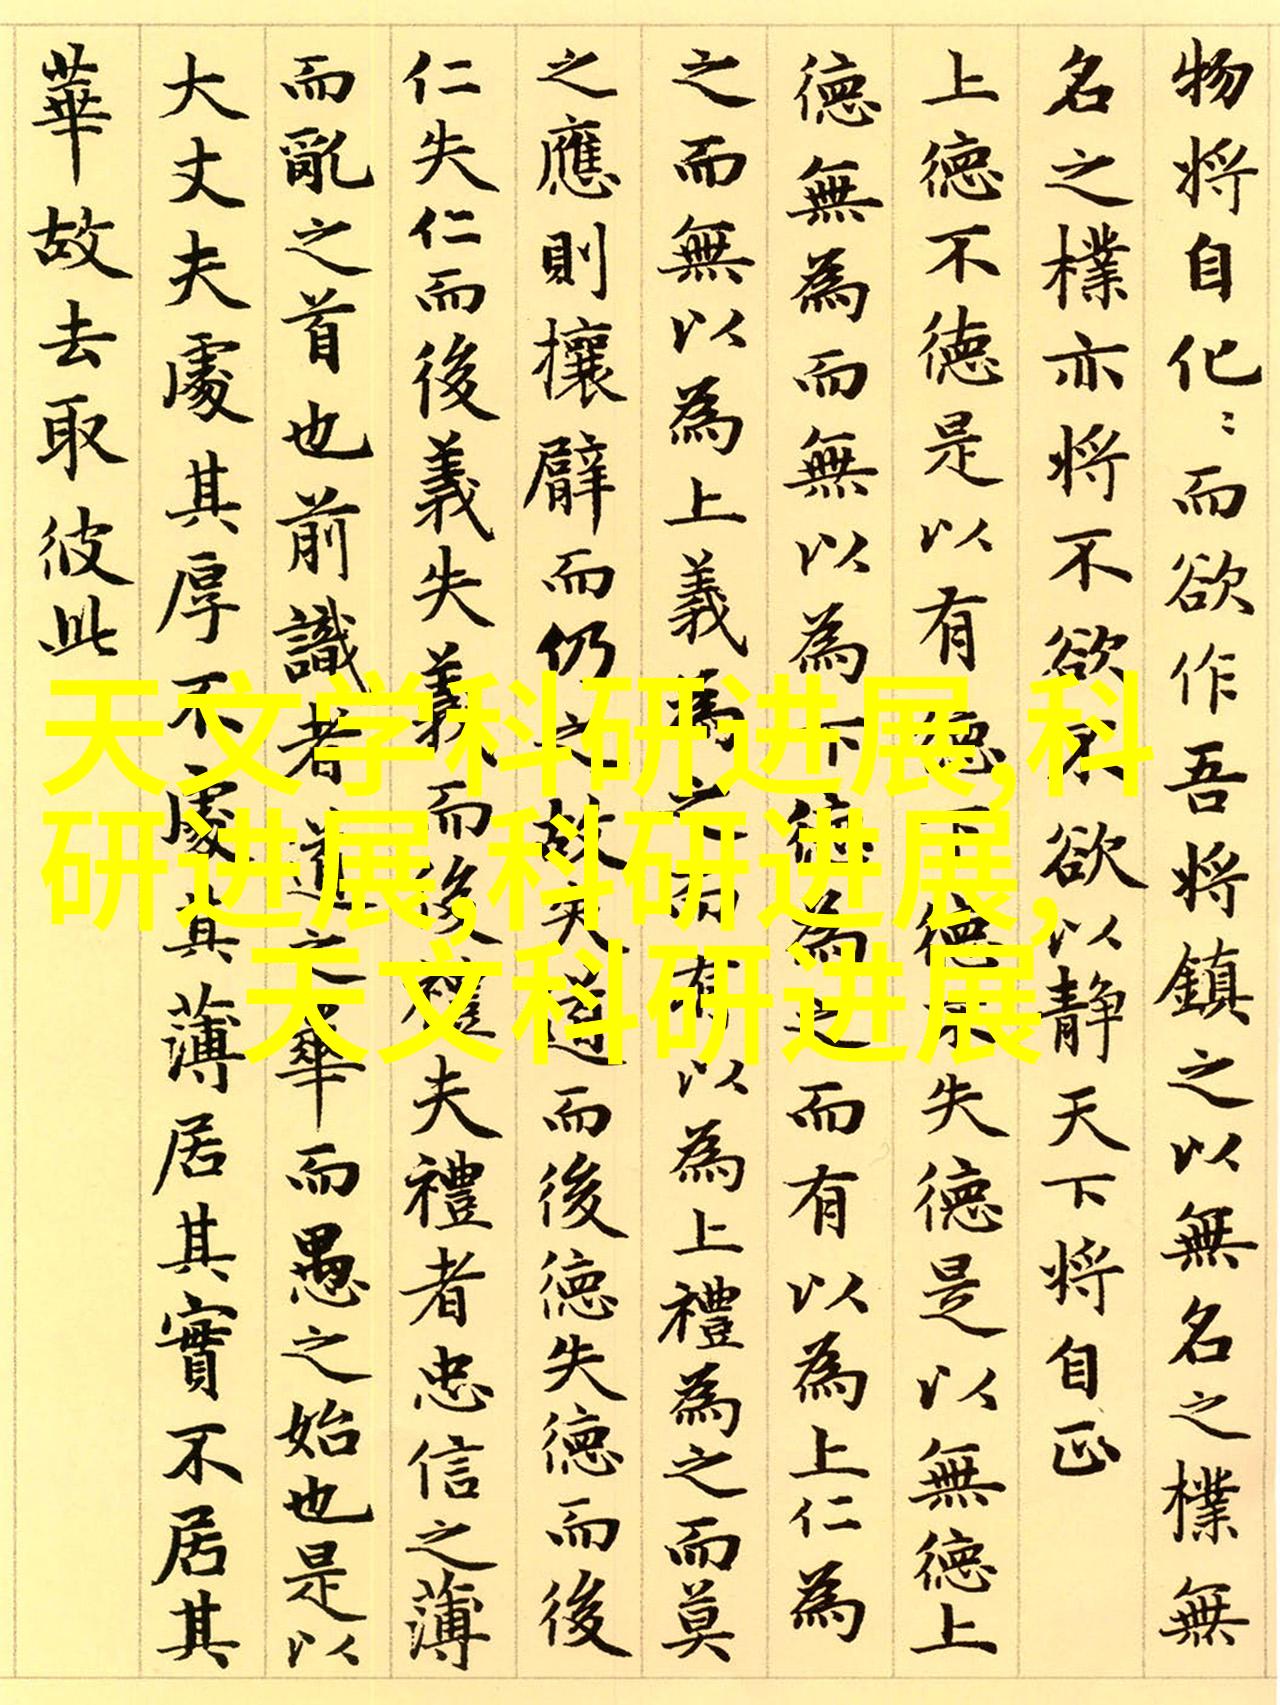 物将自化〻而欲作吾将鎮之以無名之樸無
名之樸亦将不欲不欲以静天下将自正
上徳不徳是以有徳下徳不失徳是以無徳上
徳無為而無以為下徳為之而有以為上仁為
之而無以為上義為之而有以為上禮為之而莫
之應則攘臂而仍之故失道而後徳失徳而後
仁失仁而後義失義而後禮夫禮者忠信之薄
而亂之首也前識者道之華而愚之始也是以
大丈夫處其厚不處其薄居其實不居其
華故去取彼此
天文学科研进展,科
研进展,科研进展,
天文科研进展